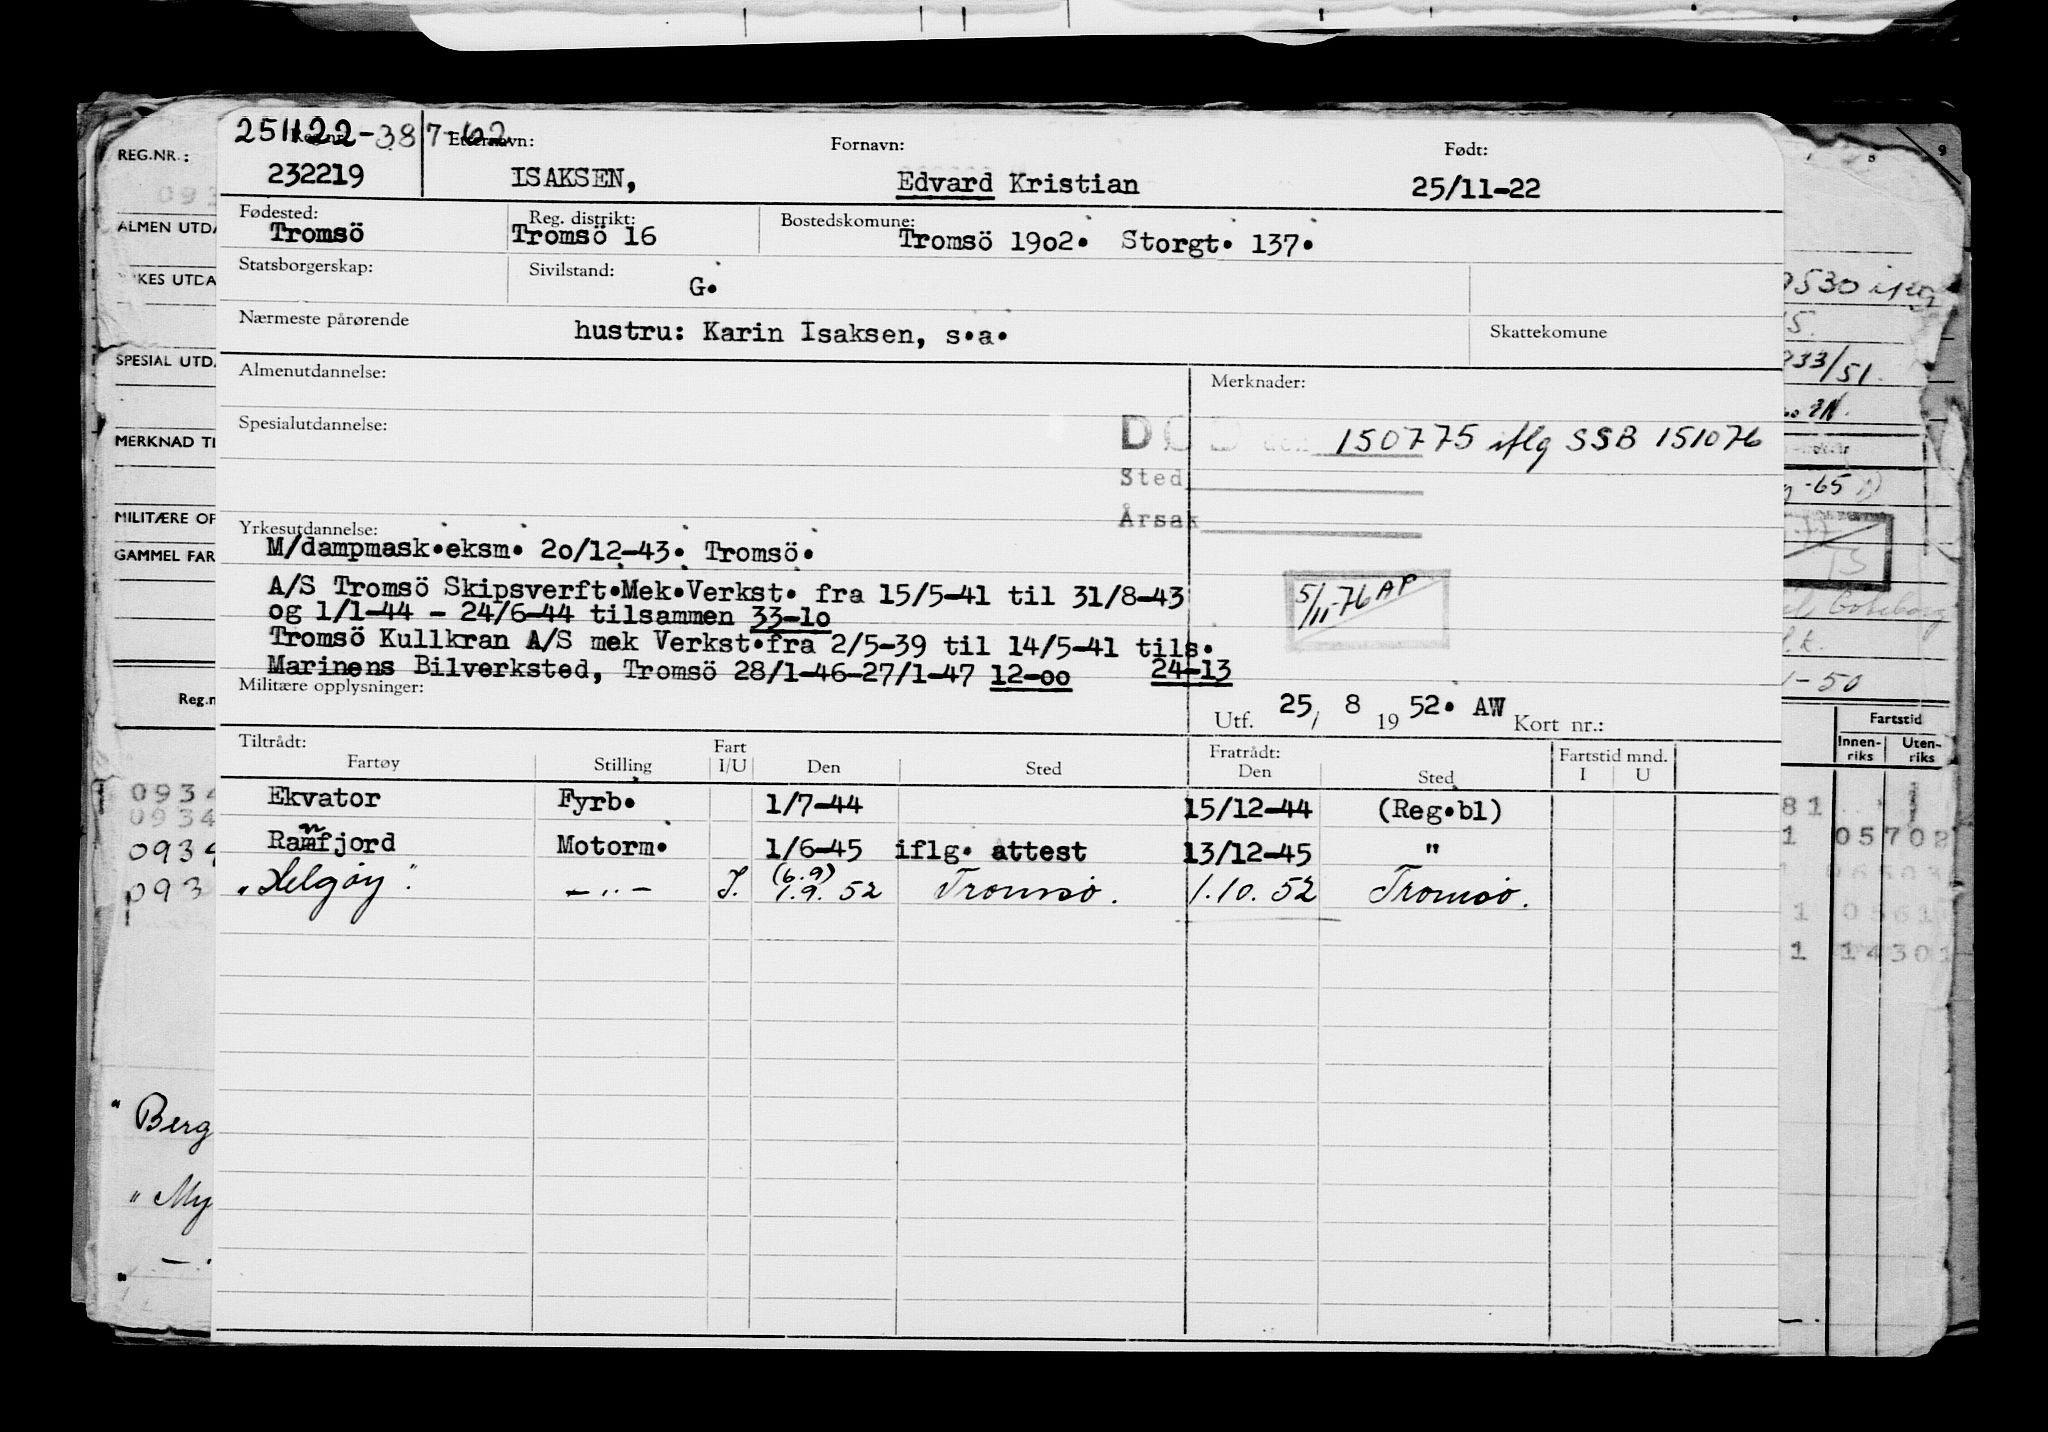 251122-387-62
Reg.nr. Etternavn: Fornavn: Født:
232219 ISAKSEN, Edvard Kristian 25/11-22
Fødested: Reg. distrikt: Bostedskomune:
Tromsö Tromsö 16 Tromsö 1902. Storgt. 137.
Statsborgerskap: Sivilstand:
G.
Nærmeste pårørende Skattekomune
hustru: Karin Isaksen, s.a.
Almenutdannelse: Merknader:
Spesialutdannelse: DØD den 150775 iflg SSB 151076
Sted
Årsak
Yrkesutdannelse:
M/dampmask.eksm. 20/12-43. Tromsö.
A/S Tromsö Skipsverft.Mek.Verkst. fra 15/5-41 til 31/8-43
og 1/1-44 - 24/6-44 tilsammen 33-10
Tromsö Kullkran A/S mek Verkst.fra 2/5-39 til 14/5-41 tils.
Marinens Bilverksted, Tromsö 28/1-46-27/1-47 12-00 24-13
5/11-76 AP
Militære opplysninger:
Utf. 25/ 8 19 52. AW Kort nr.:
Tiltrådt: Fart Fratrådt: Fartstid mnd.
Fartøy Stilling I/U Den Sted Den Sted I U
Ekvator Fyrb. 1/7-44 15/12-44 (Reg.bl)
Ramnfjord Motorm. 1/6-45 iflg. attest 13/12-45 "
(6.9)
"Helgøy". -"- I. 1.9.52 Tromsø. 1.10.52 Tromsø.
REG.NR.:
093
ALMEN UTDA
KES UTDA
SPESIAL UTD
MERKNAD TI
MILITÆRE OP
GAMMEL FAR
Reg.n
0934
0934
0934
093
" Berg
" My
9
9530
933/51.
-65
-50
Fartstid
Innen-riks Uten-riks
81
1 05702
1 0561
1 14301